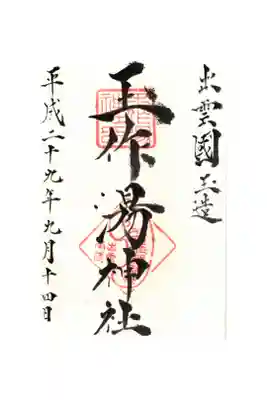 出雲國玉造
玉作湯神社
平成二十九年九月十四日